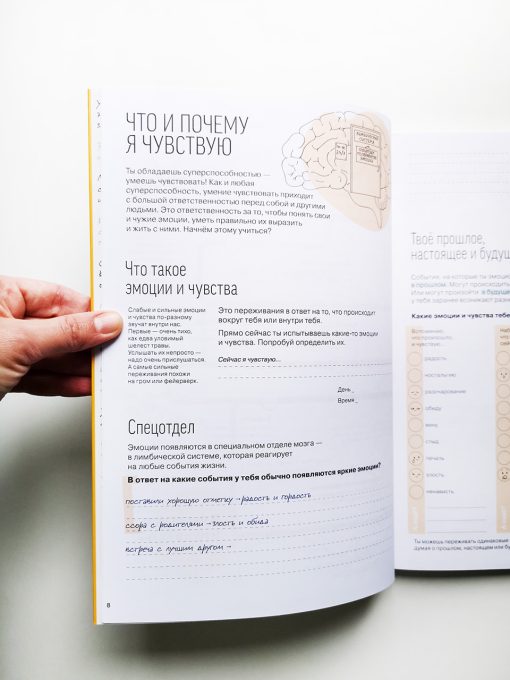 ЧТО И ПОЧЕМУ
Я ЧУВСТВУЮ
ЛИМБИЧЕСКАЯ
СИСТЕМА
Ты обладаешь суперспособностью —
умеешь чувствовать! Как и любая
суперспособность, умение чувствовать приходит
с большой ответственностью перед собой и другими
людьми. Это ответственность за то, чтобы понять свои
и чужие эмоции, уметь правильно их выразить
и жить с ними. Начнём этому учиться?
Что такое
эмоции и чувства
Слабые и сильные эмоции
и чувства по-разному
звучат внутри нас.
Первые — очень тихо,
как едва уловимый
шелест травы.
Услышать их непросто —
надо очень прислушаться.
А самые сильные
переживания похожи
на гром или фейерверк.
Это переживания в ответ на то, что происходит
вокруг тебя или внутри тебя.
Прямо сейчас ты испытываешь какие-то эмоции
и чувства. Попробуй определить их.
Сейчас я чувствую...
День
Время
Спецотдел
Эмоции появляются в специальном отделе мозга —
в лимбической системе, которая реагирует
на любые события жизни.
В ответ на какие события у тебя обычно появляются яркие эмоции?
поставили хорошую отметку → радость и гордость
ссора с родителями → злость и обида
встреча с лучшим другом →
8
Твоё прошлое,
настоящее и будущ
События, на которые ты эмоци
в прошлом. Могут происходить
Или могут произойти в будуще
у тебя заранее возникают разн
Какие эмоции и чувства тебе
Вспоминаю,
что произошло,
и чувствую...
радость
ностальгию
разочарование
обиду
вину
стыд
печаль
злость
ненависть
Ты можешь переживать одинаковые
думая о прошлом, настоящем или бу